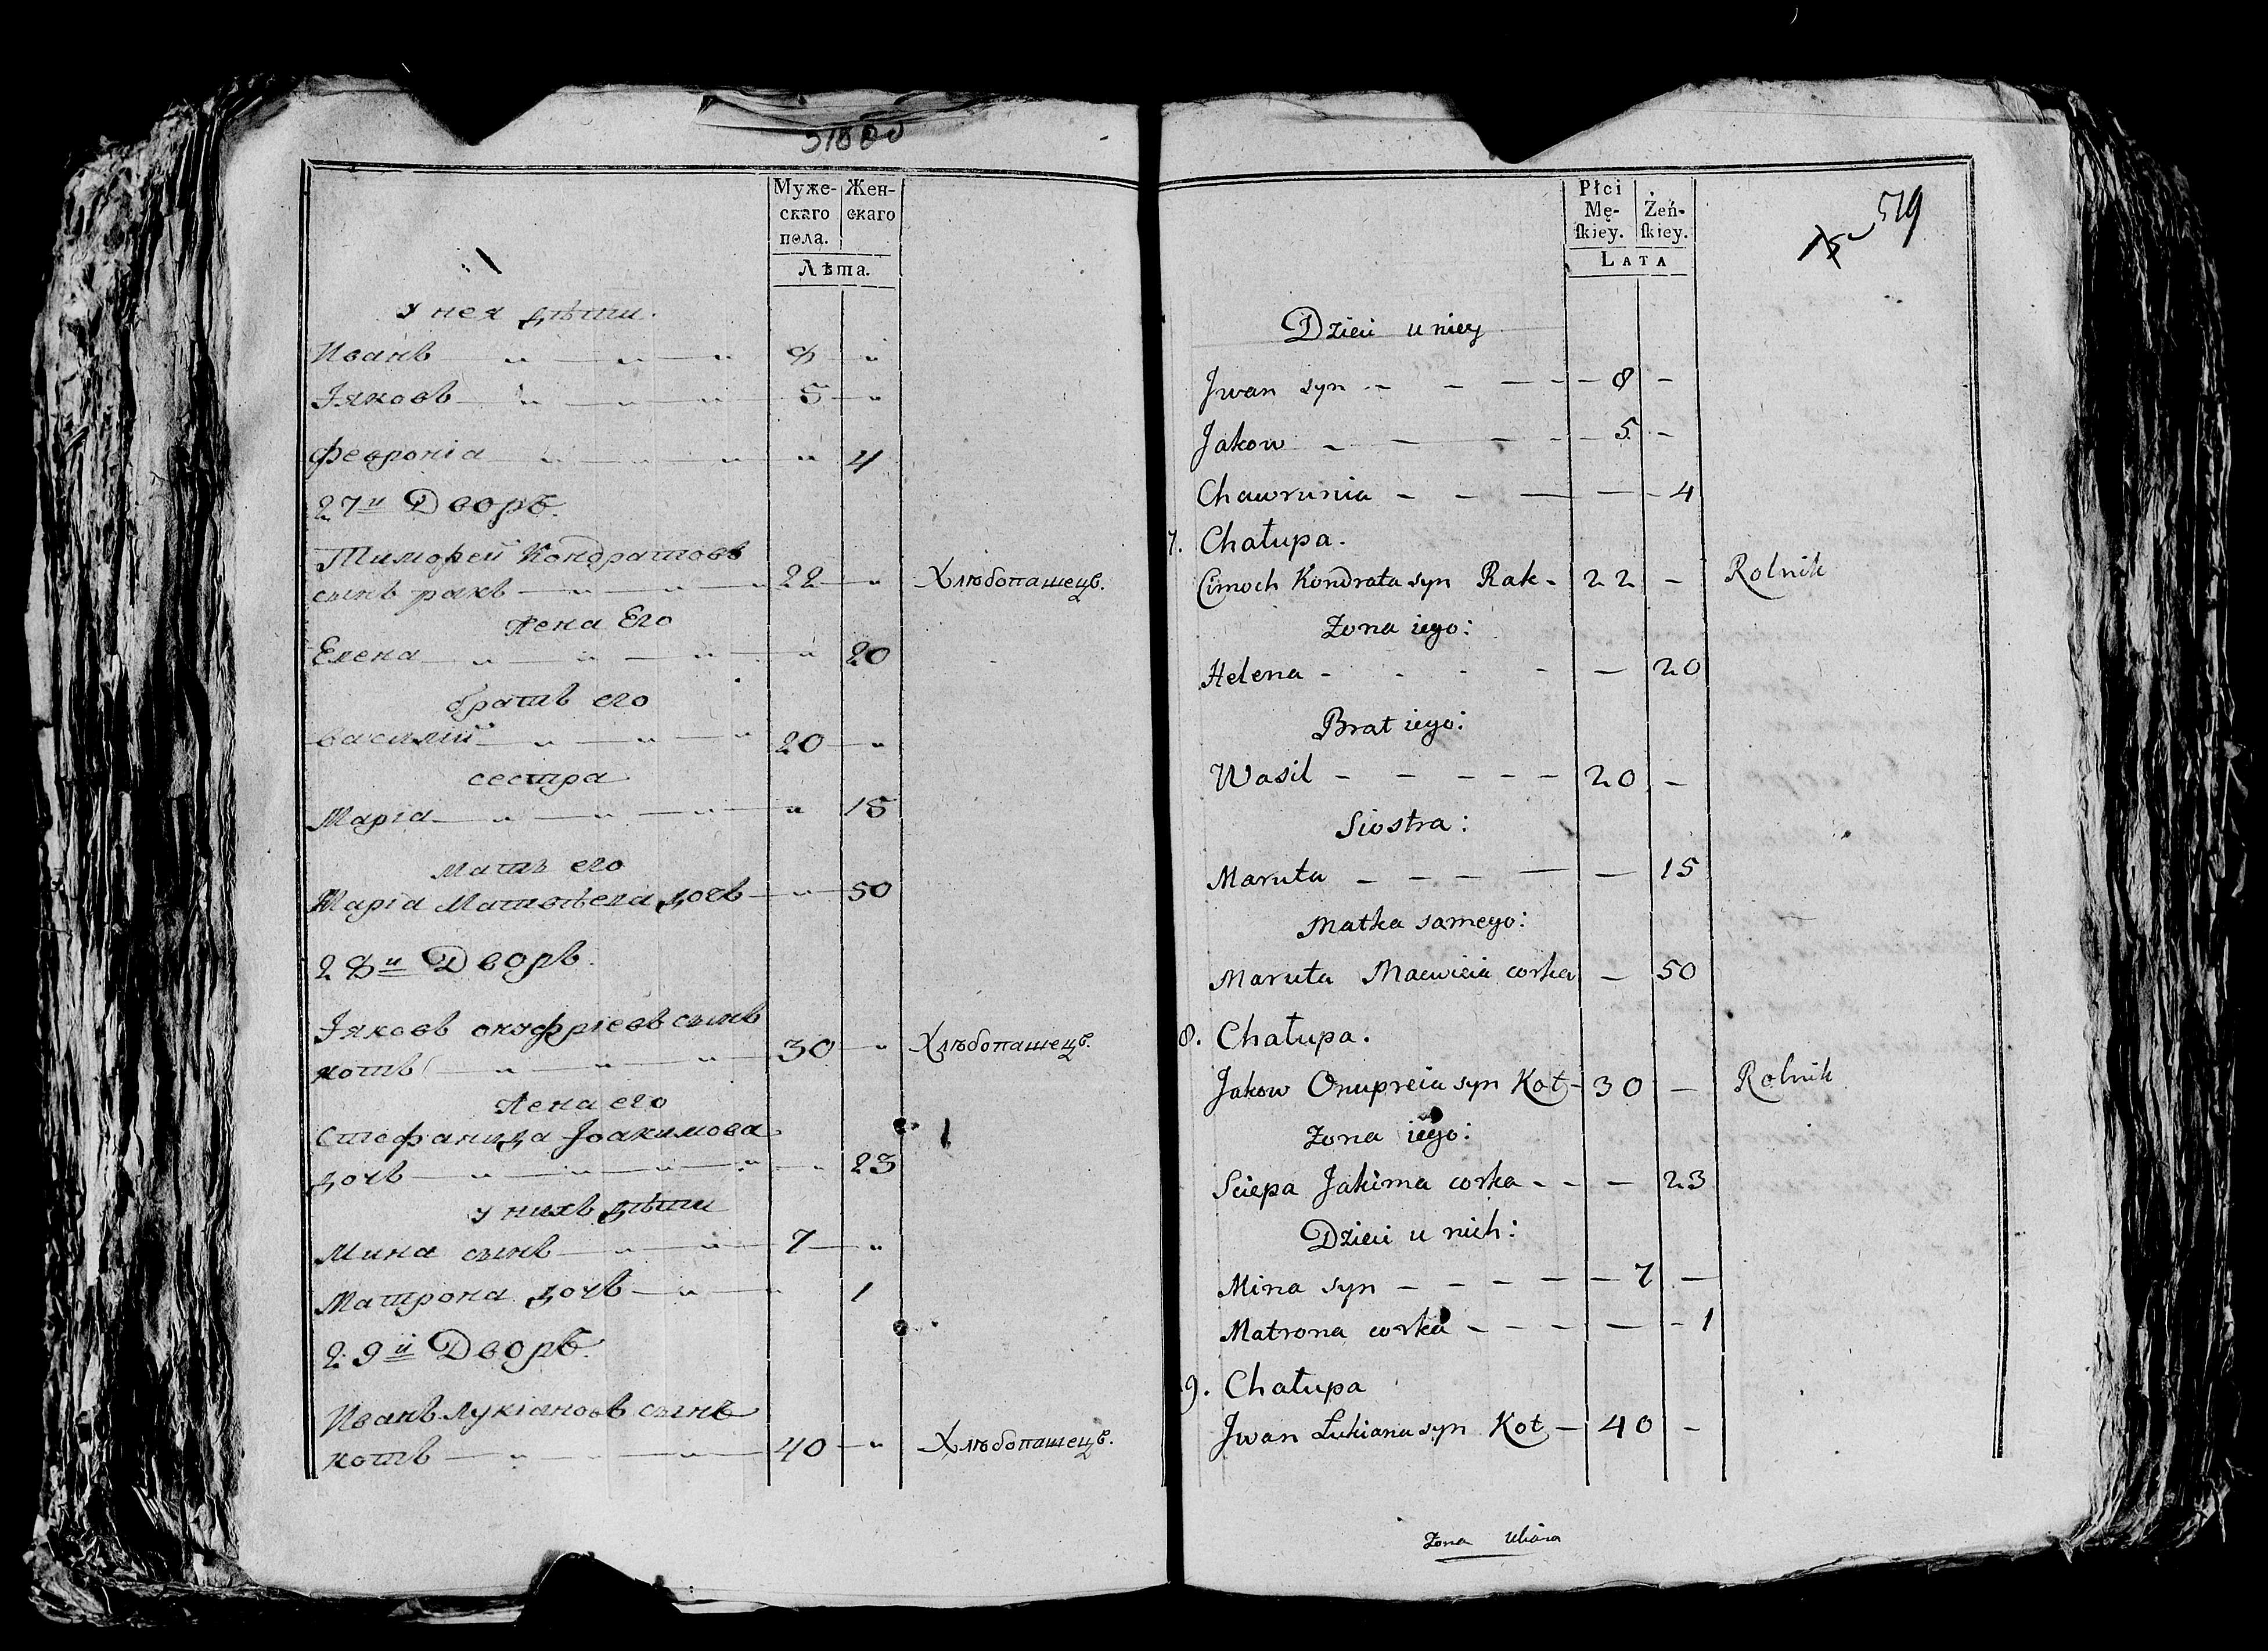 Муже-
скаго
пола.
Жен-
скаго
Лѣта.
У нея дѣти.
Иванъ 8 "
Іяковъ 5 "
Феѵронїа " 4
27й Дворъ.
Тимофей Кондратовъ
сынъ ракъ 22 " Хлѣбопашецъ.
Жена Его
Елена " 20
братъ его
василїй 20 "
сестра
Марїа " 15
мать его
Марїа Матвѣева дочь " 50
28й Дворъ.
Іяковъ онуфрїевъ сынъ
котъ 30 " Хлѣбопашецъ.
Жена его
Стефанида Іоакимова
дочь " 23
у нихъ дѣти
Мина сынъ 7 "
Матрона дочь " 1
29й Дворъ.
Иванъ лукїановъ сынъ
котъ 40 " Хлѣбопашецъ.
Płci
Mę-
skiey.
Żeń-
skiey.
LATA
519
Dzieci u niey
Jwan syn - - - 8 -
Jakow - - - 5 -
Chawrunia - - - - 4
7. Chałupa.
Cimoch Kondrata syn Rak - 22 - Rolnik
Zona iego:
Helena - - - - 20
Brat iego:
Wasil - - - 20 -
Siostra:
Maruta - - - - 15
Matka samego:
Maruta Macwieia corka - 50
8. Chałupa.
Jakow Onupreia syn Kot - 30 - Rolnik
Zona iego:
Sciepa Jakima corka - - - 23
Dzieci u nich:
Mina syn - - - - 7 -
Matrona corka - - - - 1
9. Chałupa
Jwan Łukiana syn Kot - 40 -
Zona Uliana